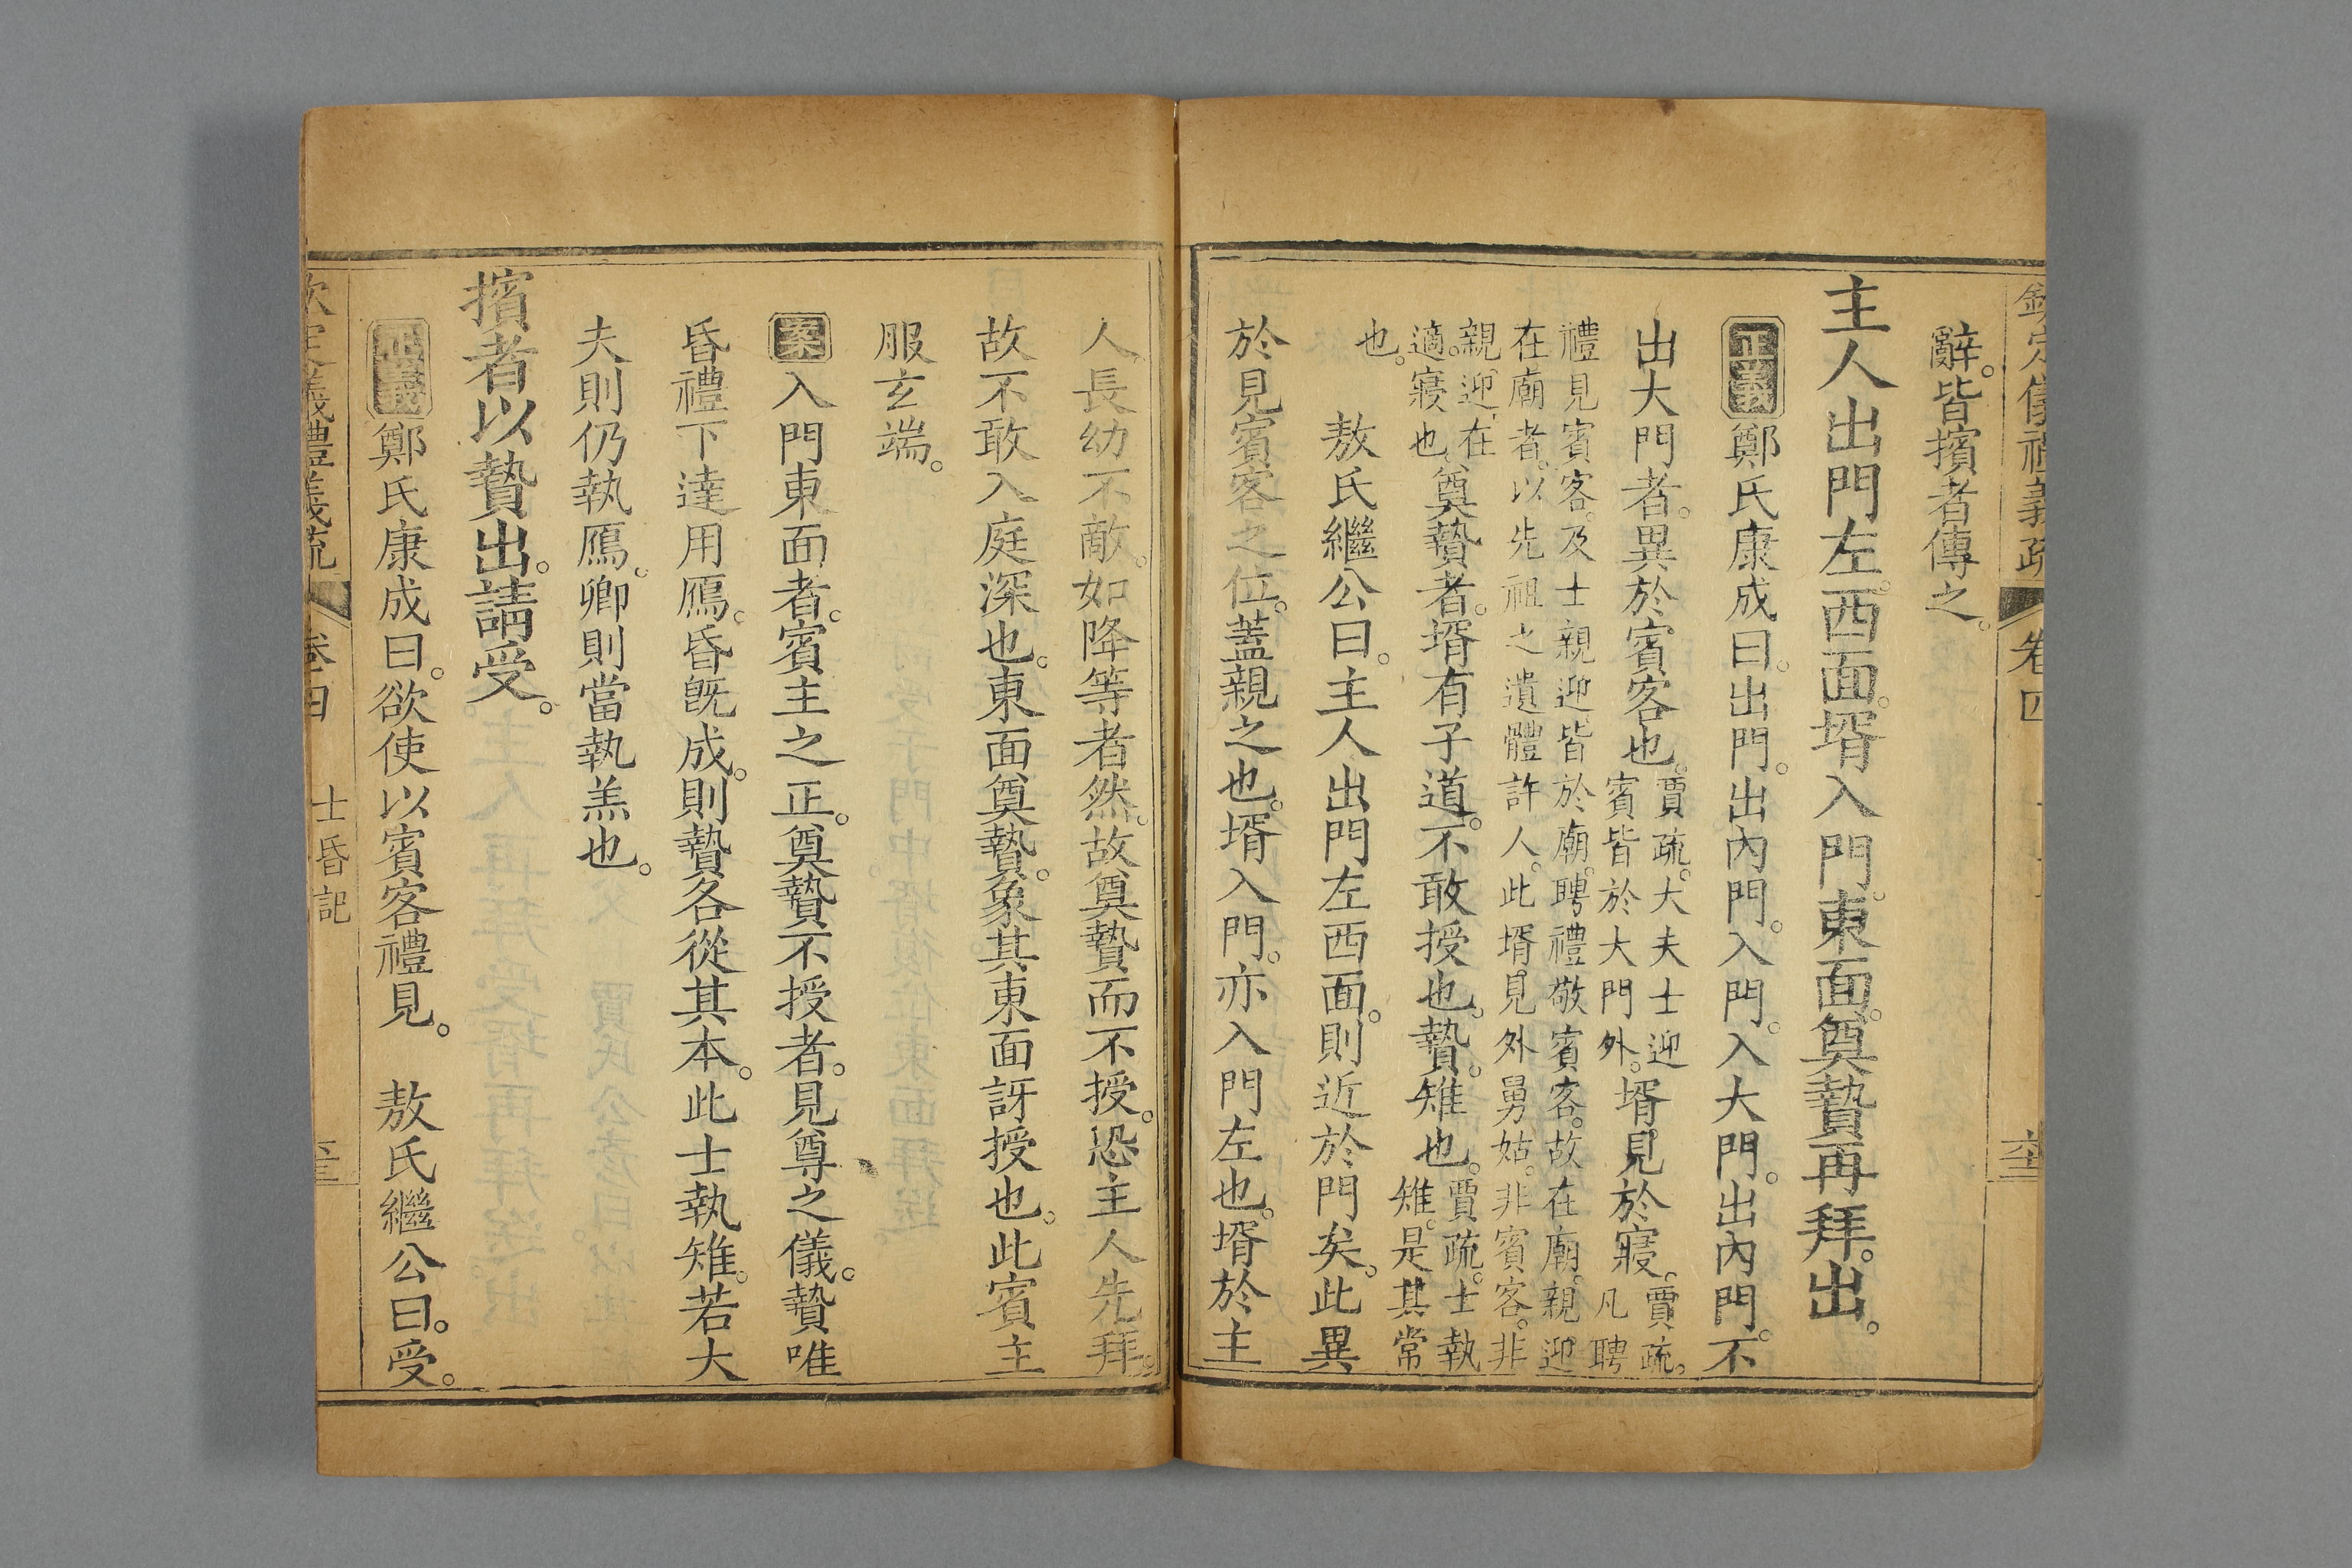 欽定儀禮義疏 卷四
辭。皆擯者傳之。
主人出門左。西面。壻入門。東面。奠贄再拜。出。
正義 鄭氏康成曰。出門。出內門。入門。入大門。出內門。不
出大門者。異於賓客也。賈疏。大夫士迎
賓皆於大門外。壻見於寢。賈疏。凡聘
禮見賓客。及士親迎。皆於廟。聘禮敬賓客。故在廟。親迎
在廟者。以先祖之遺體許人。此壻見外舅姑。非賓客。非
親迎。在
適寢也。奠贄者。壻有子道。不敢授也。贄。雉也。賈疏。士執
雉。是其常
也。 敖氏繼公曰。主人出門左西面。則近於門矣。此異
於見賓客之位。蓋親之也。壻入門。亦入門左也。壻於主
人長幼不敵。如降等者然。故奠贄而不授。恐主人先拜。
故不敢入庭深也。東面奠贄。象其東面訝授也。此賓主
服玄端。
案 入門東面者。賓主之正。奠贄不授者。見尊之儀。贄唯
昏禮下達用鴈。昏旣成。則贄各從其本。此士執雉。若大
夫則仍執鴈。卿則當執羔也。
擯者以贄出。請受。
正義 鄭氏康成曰。欲使以賓客禮見。 敖氏繼公曰。受。
欽定儀禮義疏 卷四 士昏記